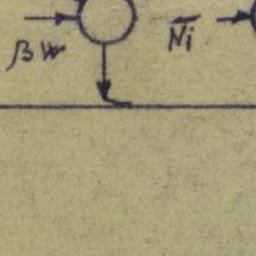 βW
N̅i